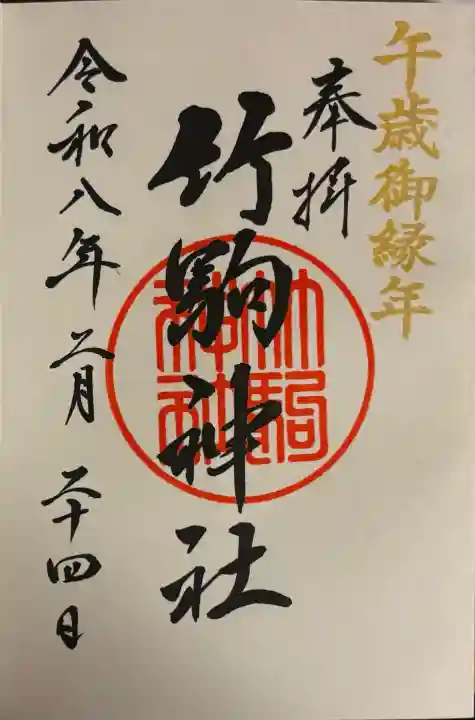 午歳御縁年
奉拝
竹駒神社
竹駒神社
令和八年二月二十四日